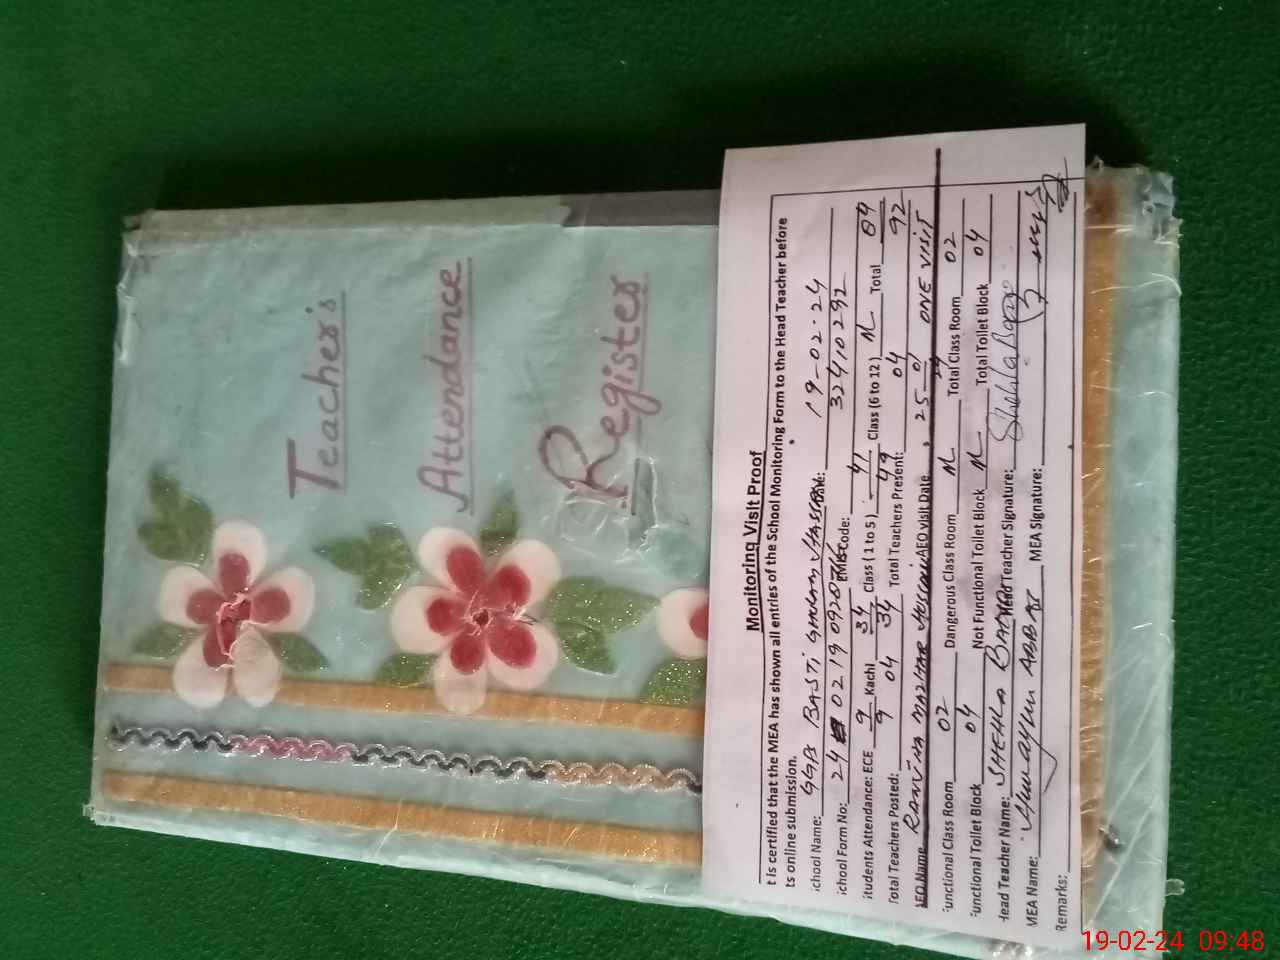 Teacher's
Attendance
Register
Monitoring Visit Proof
t is certified that the MEA has shown all entries of the School Monitoring Form to the Head Teacher before
ts online submission.
chool Name: GGPS BASTI GHULAM HASSAN 19-02-24
chool Form No: 24 02 19 0920 EMIS Code: 32410292
tudents Attendance: ECE 9/9 Kachi 34/34 Class (1 to 5) 41/49 Class (6 to 12) Total 84/92
Total Teachers Posted: 04 Total Teachers Present: 04
AEO Name AEO Visit Date 25 01 24 ONE VISIT
unctional Class Room 02 Dangerous Class Room Total Class Room 02
unctional Toilet Block 04 Not Functional Toilet Block Total Toilet Block 04
Head Teacher Name: SHEHLA BANO Head Teacher Signature: Shehla Bano
MEA Name: Humayun ABBAS MEA Signature:
Remarks:
19-02-24 09:48